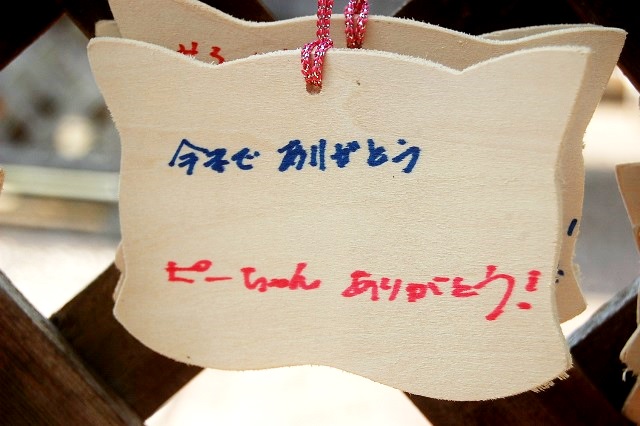 今まで ありがとう
ピーちゃん ありがとう!